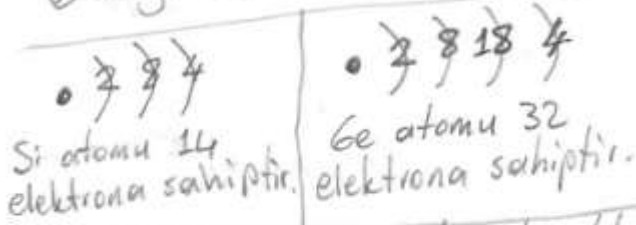 2 8 4
Si atomu 14
elektrona sahiptir.
2 8 18 4
Ge atomu 32
elektrona sahiptir.